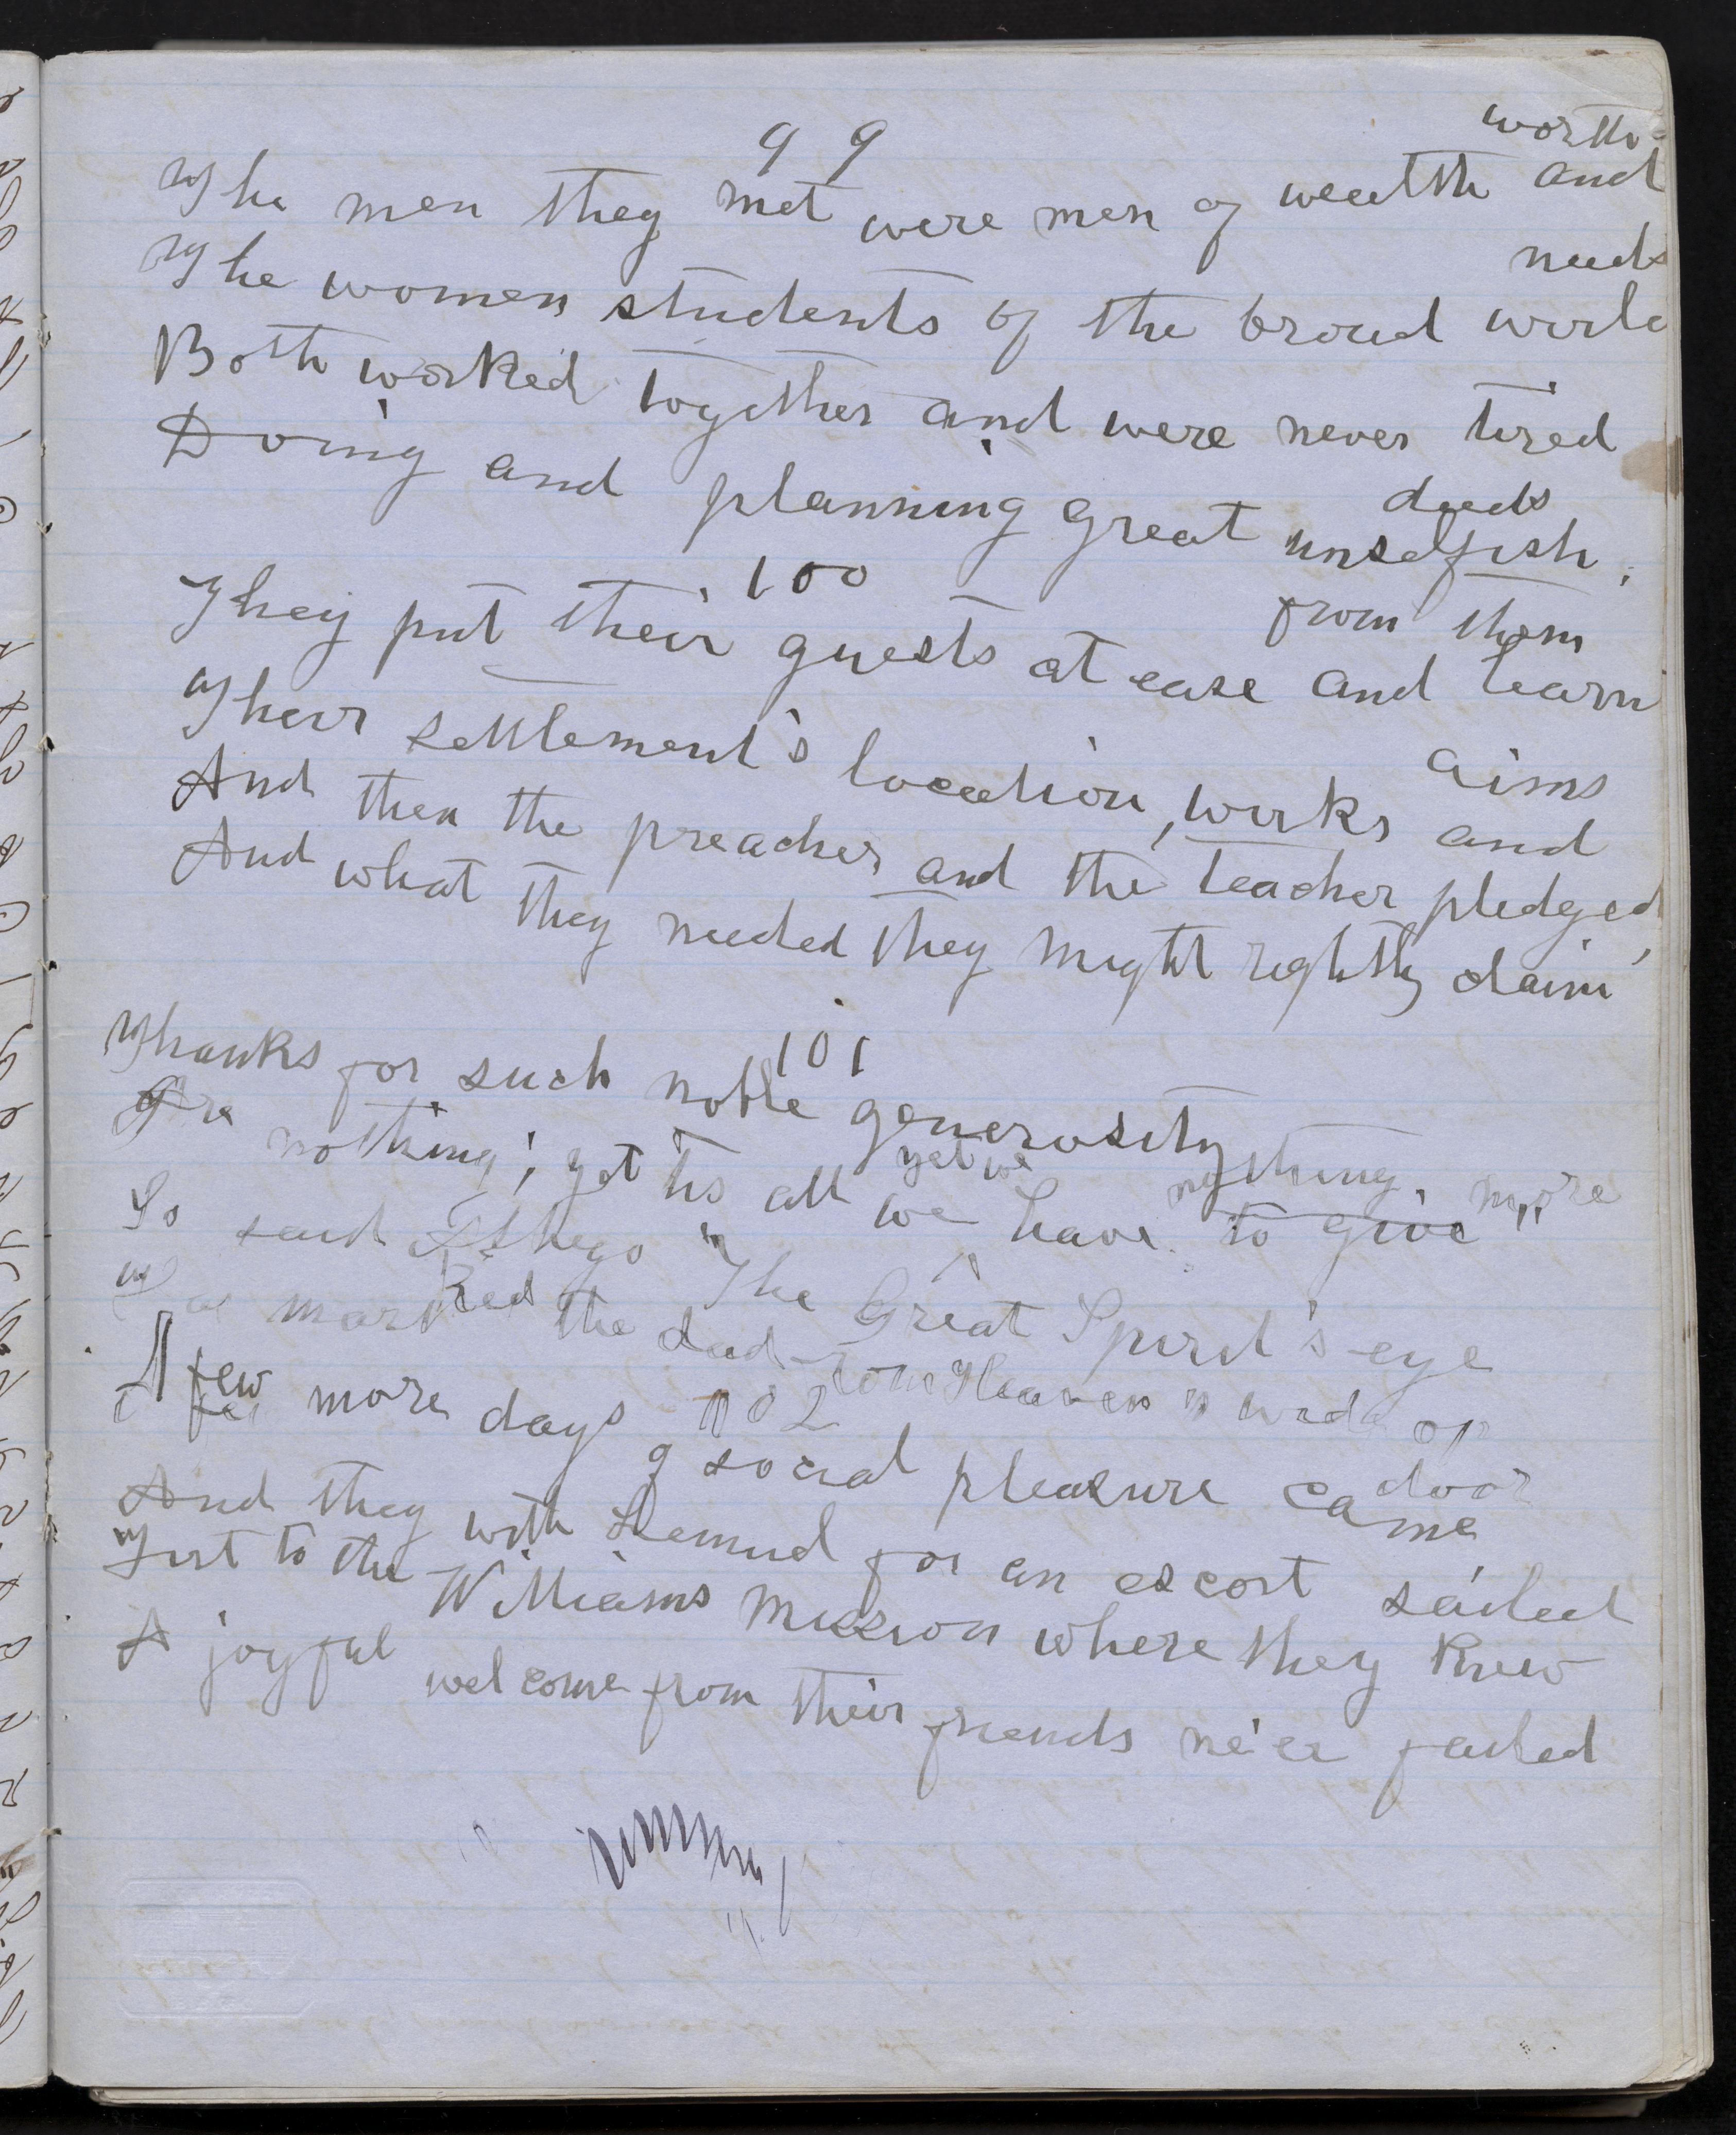 99
The men they met were men of wealth and worth
The women students of the broad world needs
Both worked together and were never tired
Doing and planning great unselfish deeds.
100
They put their guests at ease and learn from them
Their settlement's location, works and aims
And then the preacher and the teacher pledged,
And what they needed they might rightly claim
101
Thanks for such noble generosity
Are nothing; yet tis all we have to give
yet we nothing more
So said "The Great Spirit's eye
marked the deed Heaven's door
102
A few more days of social pleasure came
And they with Lemuel for an escort sailed
First to the Williams Mission where they knew
A joyful welcome from their friends ne'er failed